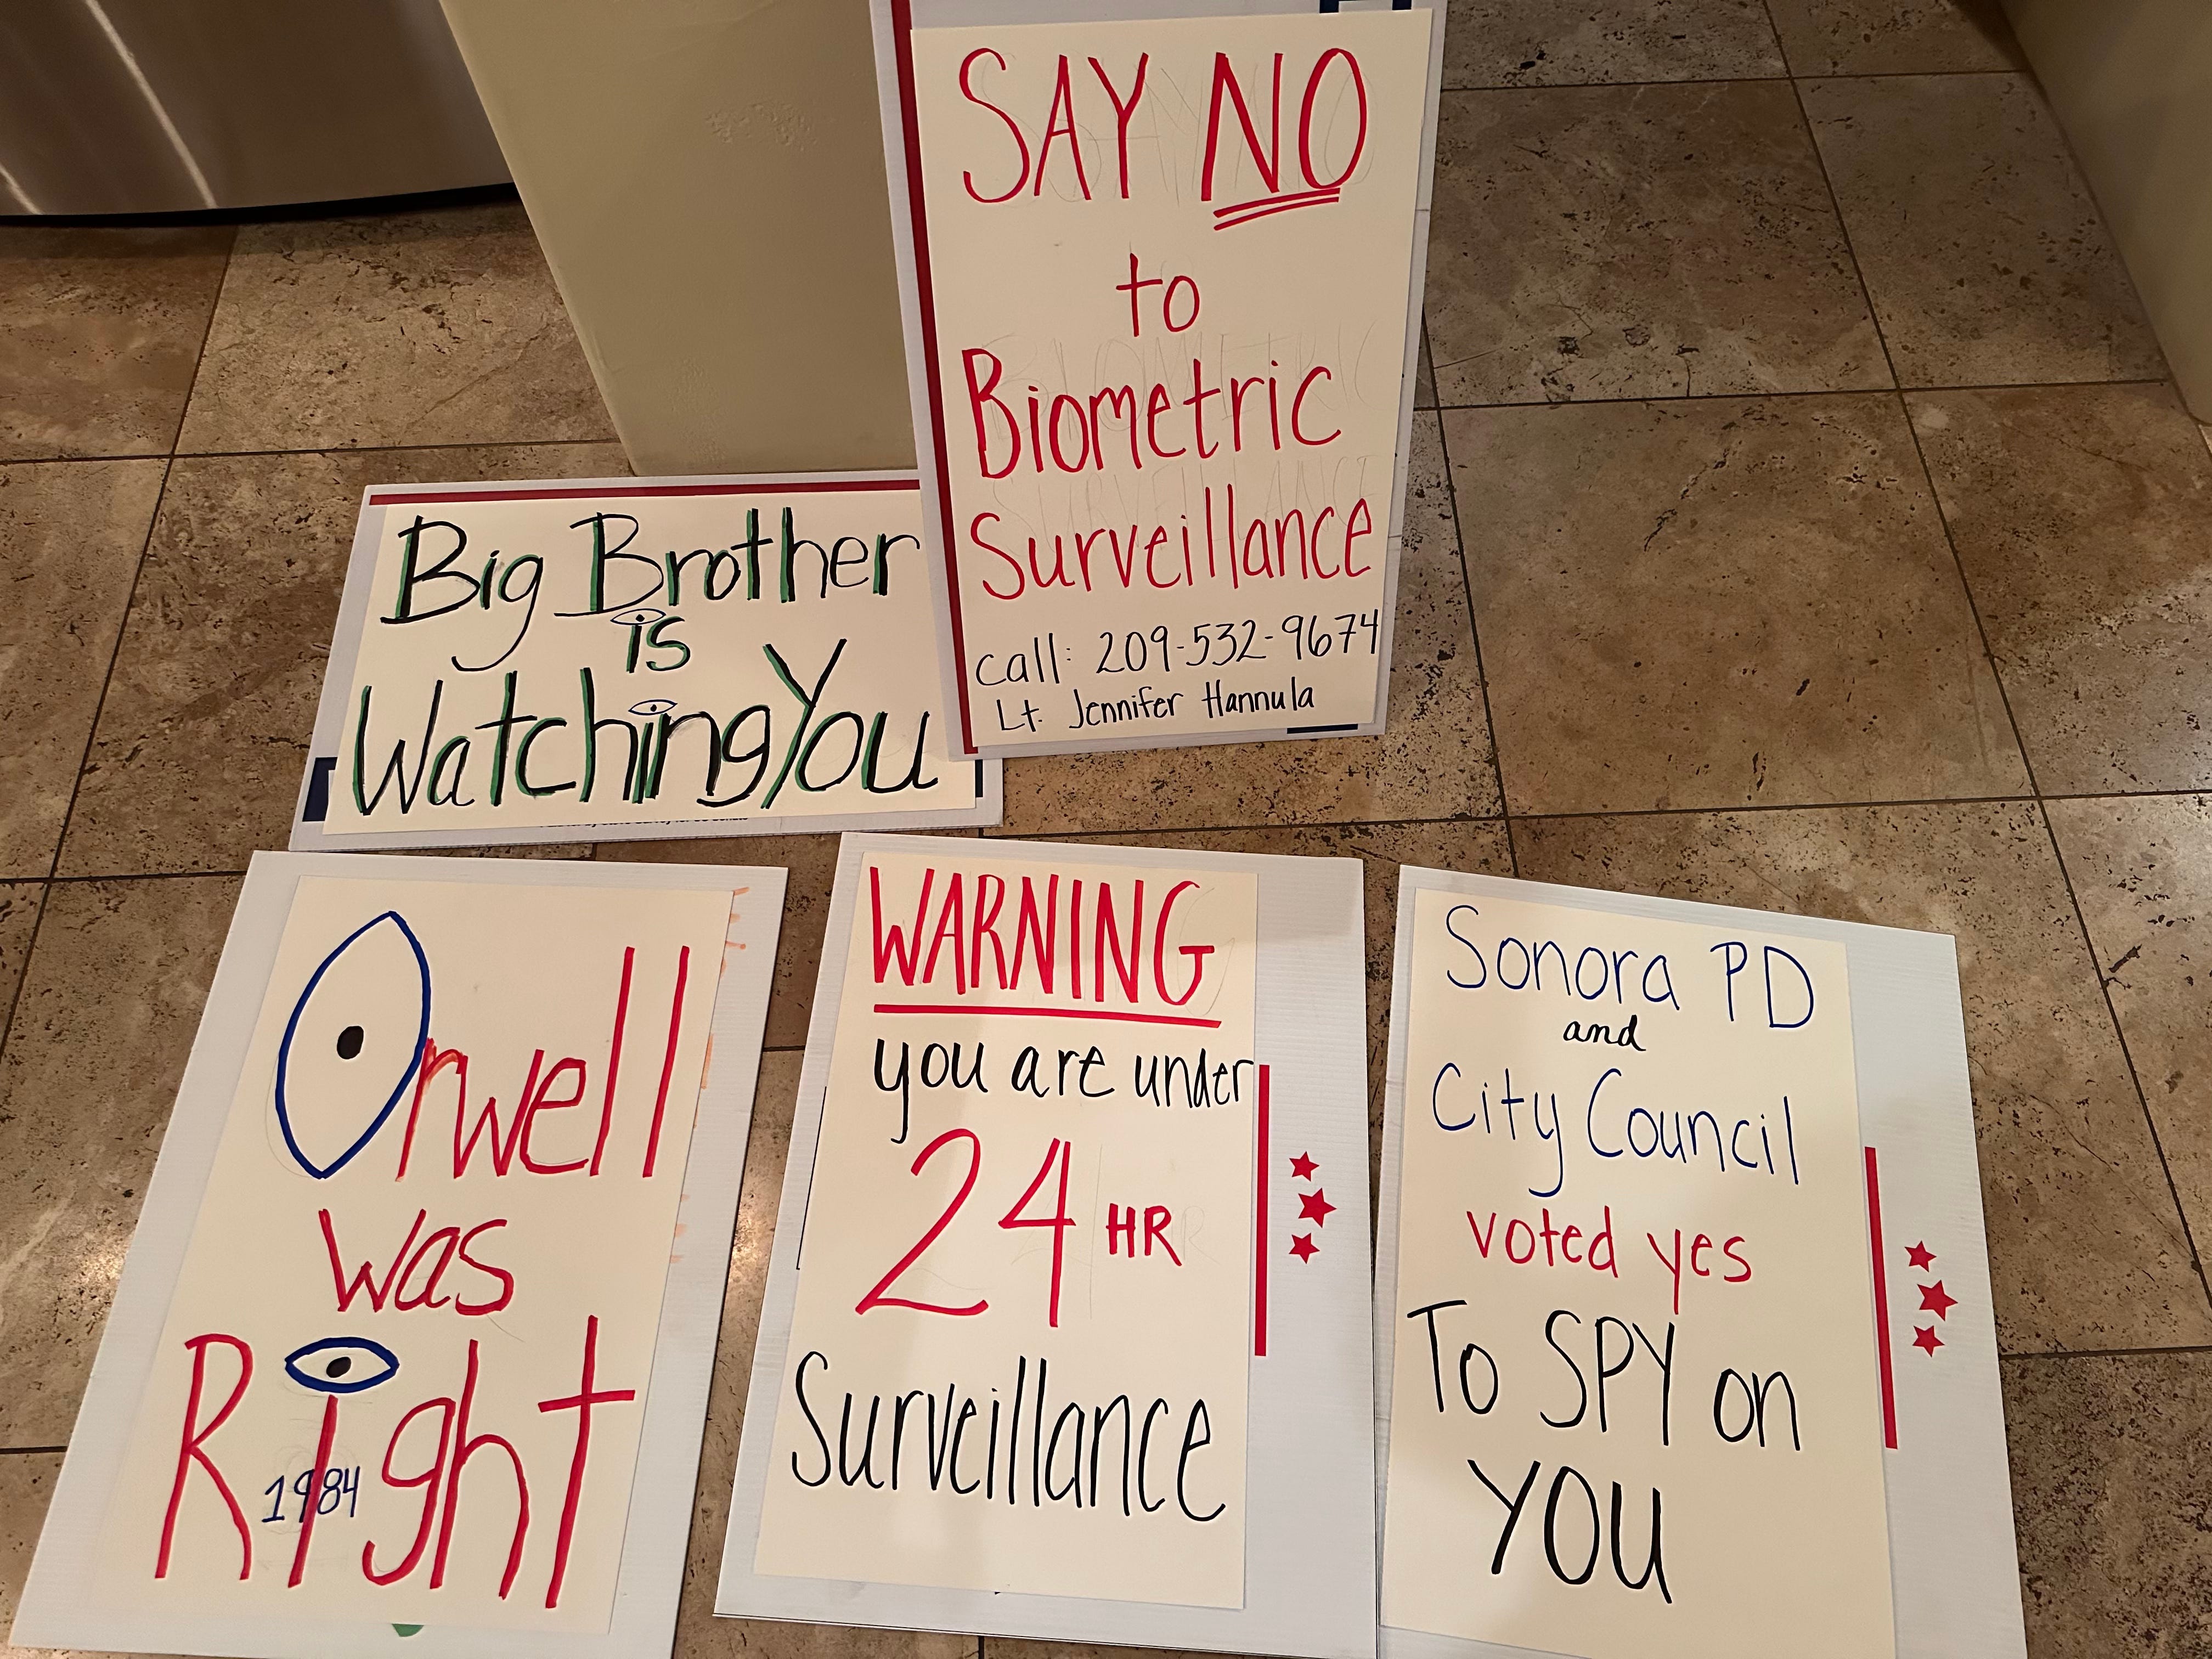 SAY NO
to
Biometric
Surveillance
call: 209-532-9674
Lt. Jennifer Hannula
Big Brother
is
Watching You
Orwell
was
Right
1984
WARNING
you are under
24 HR
Surveillance
Sonora PD
and
City Council
voted yes
To SPY on
YOU